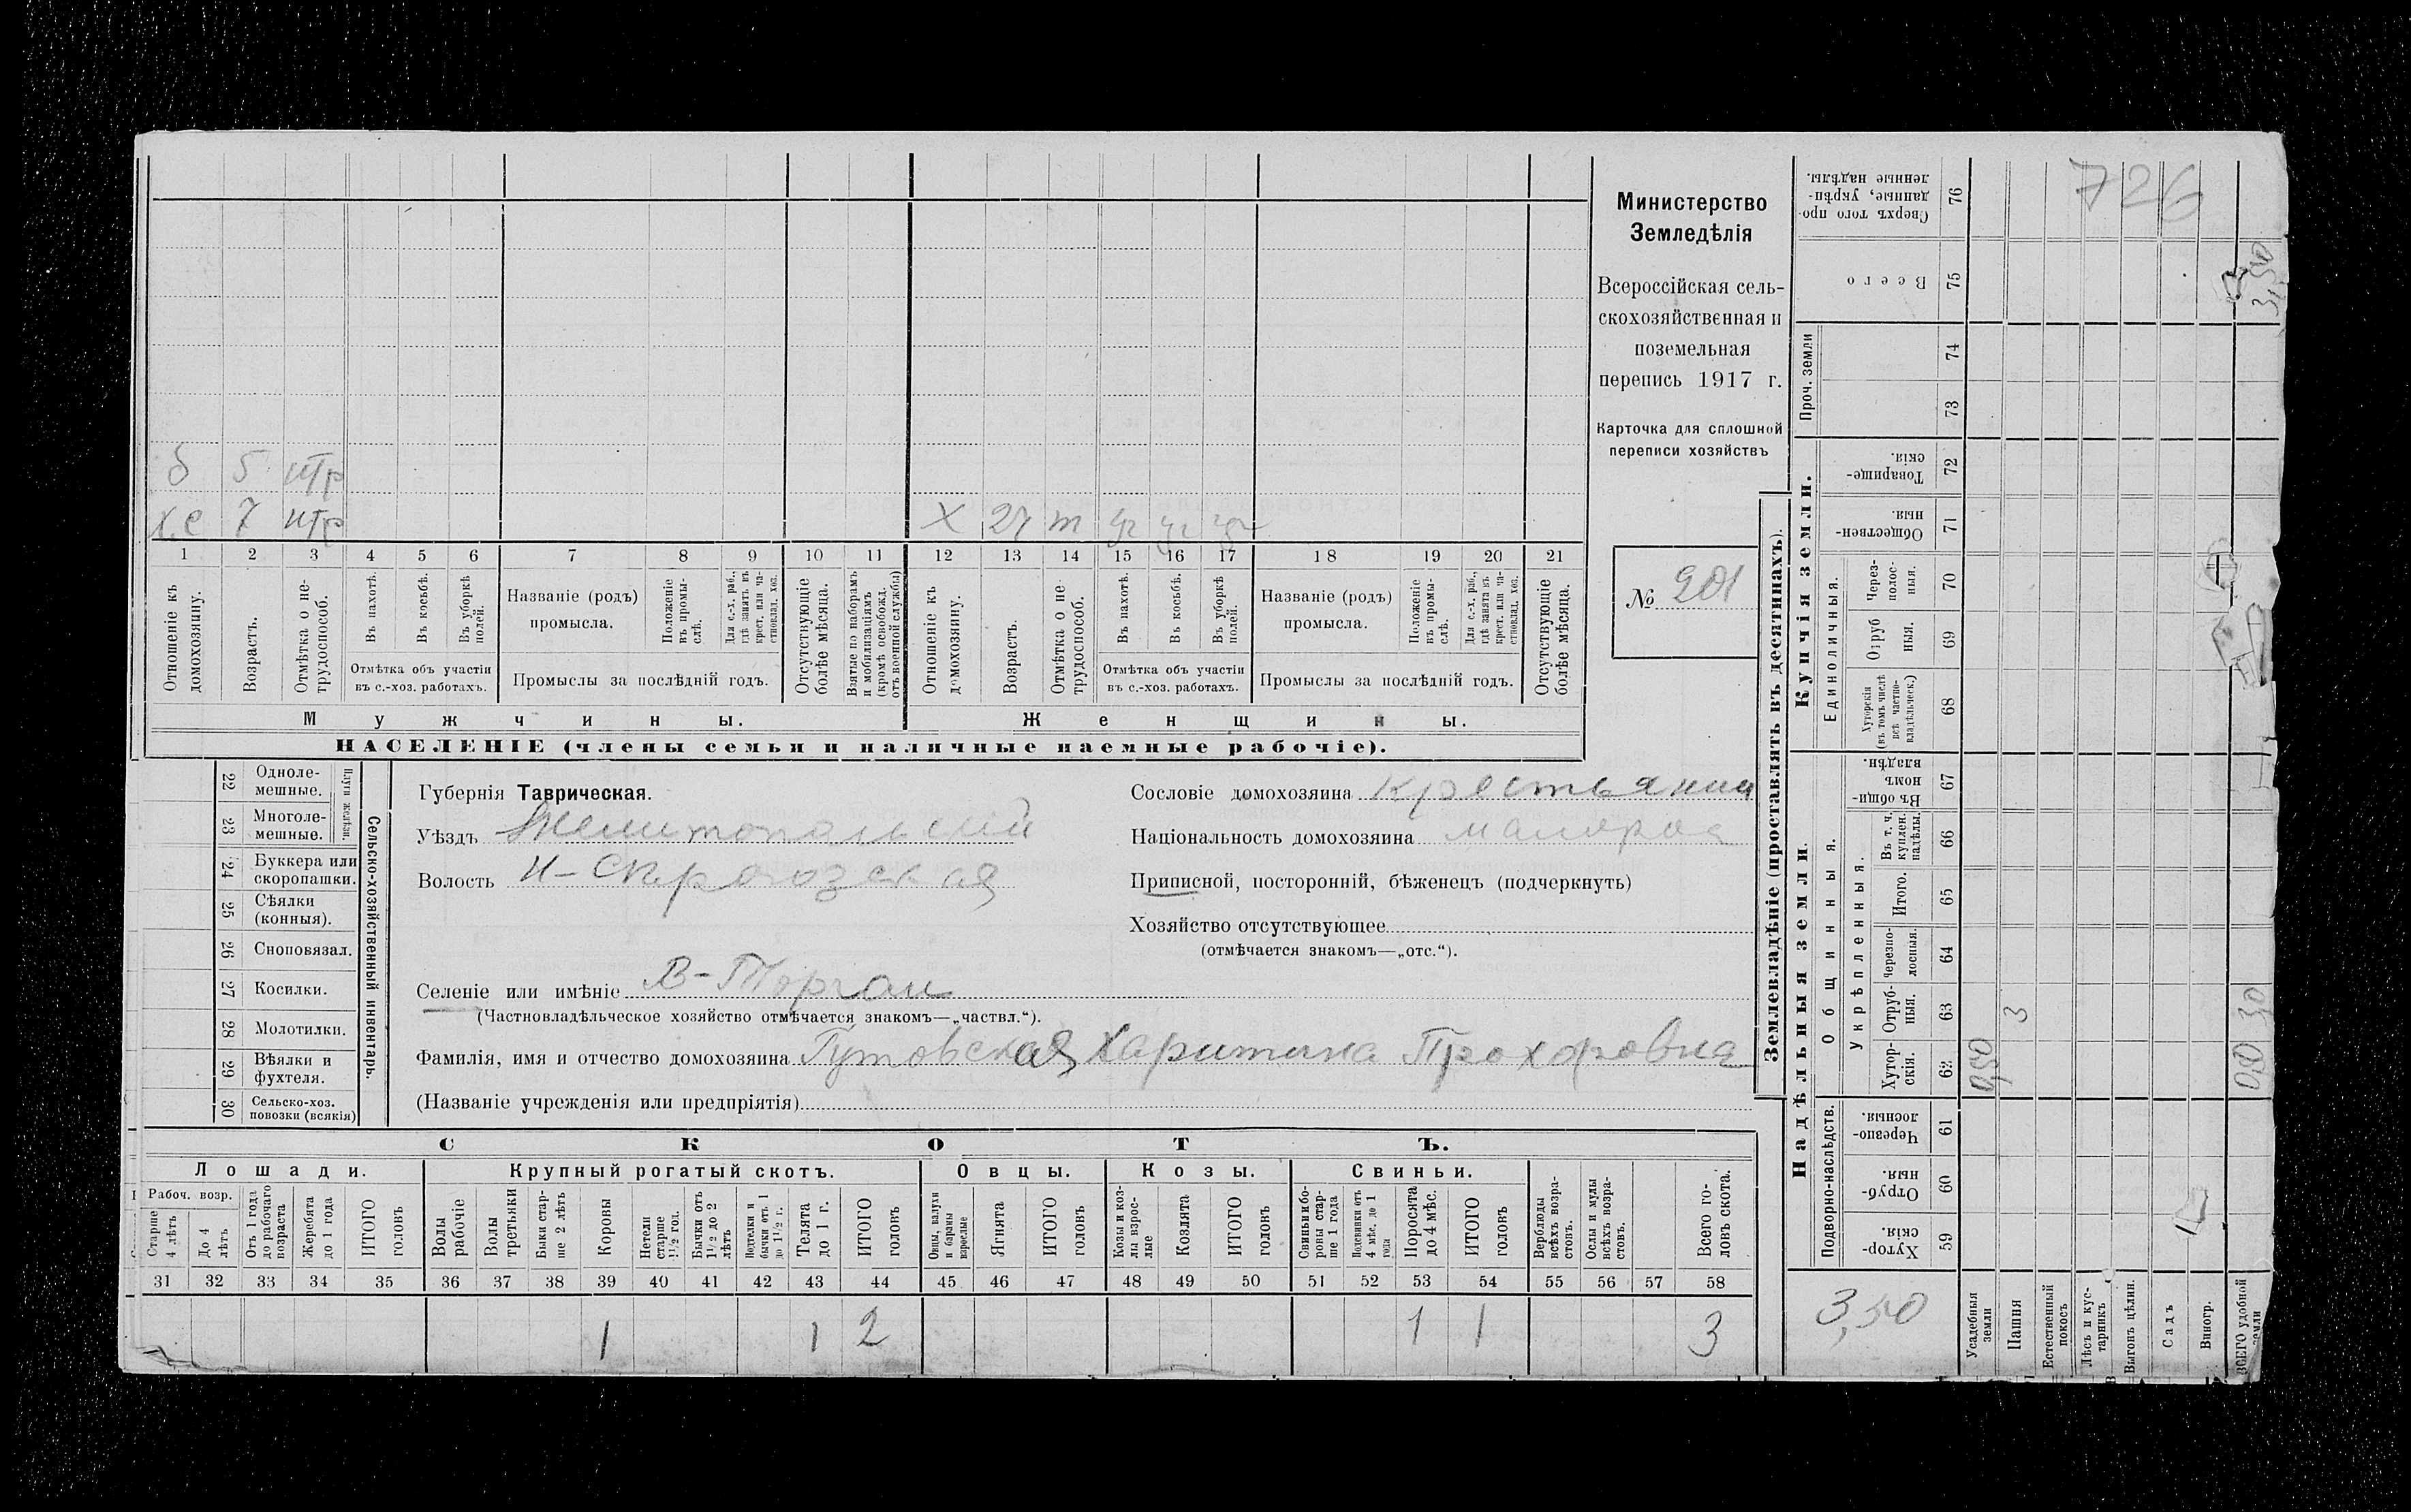 726
Министерство
Земледѣлія
Всероссійская сель-
скохозяйственная и
поземельная
перепись 1917 г.
Карточка для сплошной
переписи хозяйствъ
№ 201
б 5 нтр
х.с 7 нтр Х 27 т уч уч уч
1 2 3 4 5 6 7 8 9 10 11 12 13 14 15 16 17 18 19 20 21
Отношеніе къ домохозяину.
Возрастъ.
Отмѣтка о не-трудоспособ.
Въ пахотѣ.
Въ косьбѣ.
Въ уборкѣ полей.
Отмѣтка объ участіи
въ с.-хоз. работахъ.
Названіе (родъ)
промысла.
Положеніе въ промы-слѣ.
Для с.-х. раб., гдѣ занятъ въ крест. или ча-стновлад. хоз.
Промыслы за послѣдній годъ.
Отсутствующіе болѣе мѣсяца.
Взятые по наборамъ и мобилизаціямъ (кромѣ освобожд. отъ военной службы)
Отношеніе къ домохозяину.
Возрастъ.
Отмѣтка о не-трудоспособ.
Въ пахотѣ.
Въ косьбѣ.
Въ уборкѣ полей.
Отмѣтка объ участіи
въ с.-хоз. работахъ.
Названіе (родъ)
промысла.
Положеніе въ промы-слѣ.
Для с.-х. раб., гдѣ занята въ крест. или ча-стновлад. хоз.
Промыслы за послѣдній годъ.
Отсутствующіе болѣе мѣсяца.
Мужчины. Женщины.
НАСЕЛЕНІЕ (члены семьи и наличные наемные рабочіе).
22 Одноле-мешные.
23 Многоле-мешные.
Плуги желѣзн.
24 Буккера или скоропашки.
25 Сѣялки (конныя).
26 Сноповязал.
27 Косилки.
28 Молотилки.
29 Вѣялки и фухтеля.
30 Сельско-хоз. повозки (всякія)
Сельско-хозяйственный инвентарь.
Губернія Таврическая.
Уѣздъ Мелитопольский
Волость Н-Серогозская
Селеніе или имѣніе В-Торгаи
(Частновладѣльческое хозяйство отмѣчается знакомъ—„частвл.“).
Фамилія, имя и отчество домохозяина Гутовская Харитина Прохоровна
(Названіе учрежденія или предпріятія)
Сословіе домохозяина крестьянин
Національность домохозяина малорос
Приписной, посторонній, бѣженецъ (подчеркнуть)
Хозяйство отсутствующее
(отмѣчается знакомъ—„отс.“).
СКОТЪ.
Лошади. Крупный рогатый скотъ. Овцы. Козы. Свиньи.
Рабоч. возр.
Старше 4 лѣтъ
До 4 лѣтъ
Отъ 1 года до рабочаго возраста
Жеребята до 1 года
ИТОГО головъ
Волы рабочіе
Волы третьяки
Быки стар-ше 2 лѣтъ
Коровы
Нетели старше 1½ год.
Бычки отъ 1½ до 2 лѣтъ
Подтелки и бычки отъ 1 до 1½ г.
Телята до 1 г.
ИТОГО головъ
Овцы, валухи и бараны взрослые
Ягнята
ИТОГО головъ
Козы и коз-лы взрос-лые
Козлята
ИТОГО головъ
Свиньи и бо-ровы стар-ше 1 года
Подсвинки отъ 4 мѣс. до 1 года
Поросята до 4 мѣс.
ИТОГО головъ
Верблюды всѣхъ возра-стовъ.
Ослы и мулы всѣхъ возра-стовъ.
Всего го-ловъ скота.
31 32 33 34 35 36 37 38 39 40 41 42 43 44 45 46 47 48 49 50 51 52 53 54 55 56 57 58
1 1 2 1 1 3
Землевладѣніе (проставлять въ десятинахъ).
Надѣльныя земли. Купчія земли.
Подворно-наслѣдств.
Общинныя.
Укрѣпленныя.
Единоличныя.
Проч. земли
Хутор-скія. 59
Отруб-ныя. 60
Черезпо-лосныя. 61
Хутор-скія. 62
Отруб-ныя. 63
Черезпо-лосныя. 64
Итого. 65
Въ т. ч. куплен. надѣлы. 66
Въ общи-номъ владѣн. 67
Хуторскія (въ томъ числѣ всѣ частно-владѣльческ.) 68
Отруб ныя. 69
Через-полос-ныя. 70
Обществен-ныя. 71
Товарище-скія. 72
73
74
Всего 75
Сверхъ того про-данные, укрѣп-ленные надѣлы. 76
3,50
Усадебныя земли 0,50
Пашня 3
Естественный покосъ
Лѣсъ и кус-тарникъ
Выгонъ цѣлин.
Садъ
Виногр.
ВСЕГО удобной земли 0,50 3,0 3,50